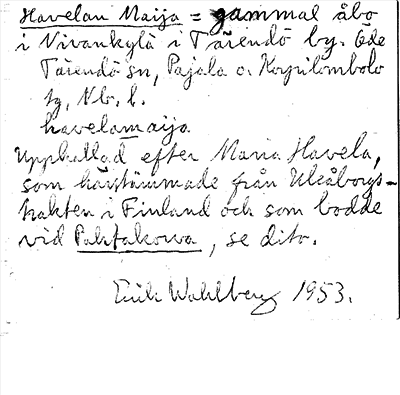 Havelan Maija = gammal åbo
i Nivankylä i Tärendö by. Öde
Tärendö sn, Pajala o. Korpilombolo
tg, Nb. l.
havelamaija
Uppkallad efter Maria Havela,
som härstammade från Uleåborgs-
trakten i Finland och som bodde
vid Paktakorva, se dito.
Erik Wahlberg 1953.